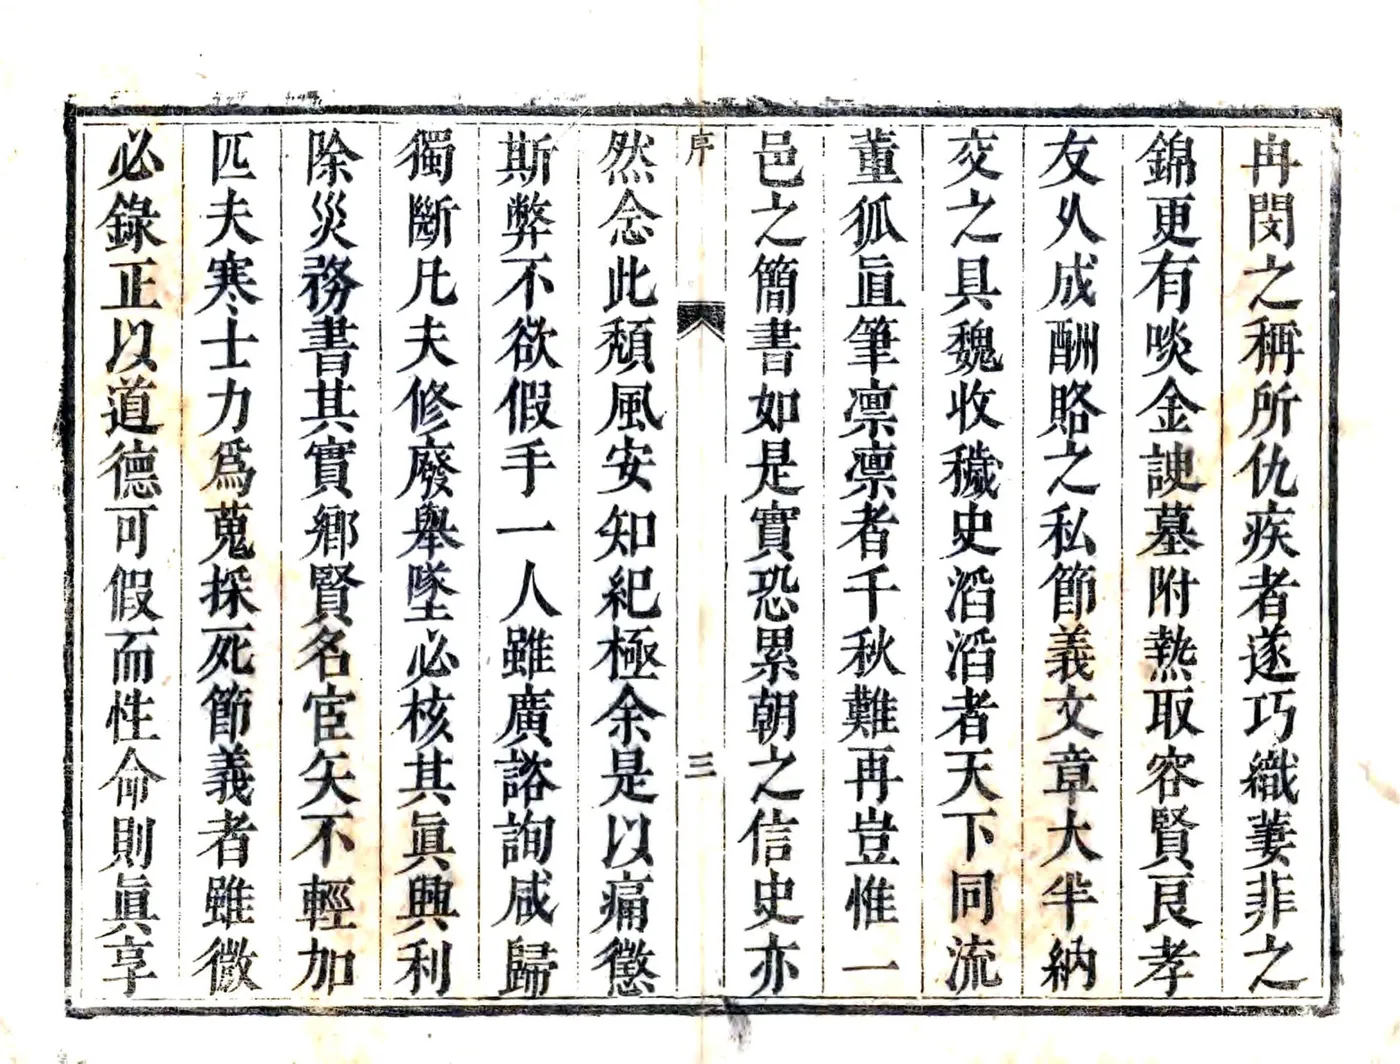 冉閔之稱所仇疾者遂巧織萋菲之
錦更有啖金諛墓附熱取容賢良孝
友乆成酬賂之私節義文章大半納
交之具魏收穢史滔滔者天下同流
董狐直筆凛凛者千秋難再豈惟一
邑之簡書如是實恐累朝之信史亦
序
三
然念此頽風安知紀極余是以痛懲
斯弊不欲假手一人雖廣諮詢咸歸
獨斷凡夫修廢舉墜必核其眞興利
除災務書其實鄉賢名宦矢不輕加
匹夫寒士力爲蒐採死節義者雖微
必錄正以道德可假而性命則眞享